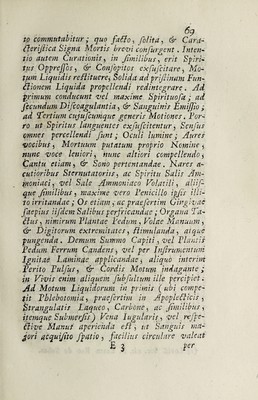 69
to commutabitur; quo facto, solita, & Cara-
cteristica Signa Mortis brevi consurgent. Inten-
tio autem Curationis, in similibus, erit Spiri-
tus Oppressos, & Consopitos exsuscitare, Mo-
tum Liquidis restituere, Solida ad pristinum Fun-
ctionem Liquida propellendi redintegrare. Ad
primum conducunt vel maxime Spirituosa; ad
secundum Discoagulantia, & Sanguinis Emissio;
ad Tertium cujuscumque generis Motiones. Por-
ro ut Spiritus languentes exsuscitentur, Sensus
omnes percellendi sunt; Oculi lumine; Aures
vocibus, Mortuum putatum proprio Nomine,
nunc voce leviori, nunc altiori compellendo,
Cantu etiam, & Sono pertentandae. Nares a-
cutioribus Sternutatoriis, ac Spiritu Salis Am-
moniaci, vel Sale Ammoniaco Volatili, aliis-
que similibus, maxime vero Penicillo ipsis illi-
to irritandae; Os etiam, ac praesertim Gingivae
saepius iisdem Salibus perfricandae; Organa Ta-
ctus, nimirum Plantae Pedum, Volae Manuum,
& Digitorum extremitates, stimulanda, atque
pungenda. Demum Summo Capiti, vel Plantis
Pedum Ferrum Candens, vel per Instrumentum
Ignitae Laminae applicandae, aliquo interim
Perito Pulsus, & Cordis Motum indagante;
in Vivis enim aliquem subsultum ille percipiet.
Ad Motum Liquidorum in primis (ubi compe-
tit Phlebotomia, praesertim in Apoplecticis,
Strangulatis Laqueo, Carbone, ac similibus,
itemque Submersis) Vena Iugularis, vel respe-
ctive Manut aperienda est, ut Sanguis ma-
jori acquisito spatio, facilius circulare valeat
E 3 per